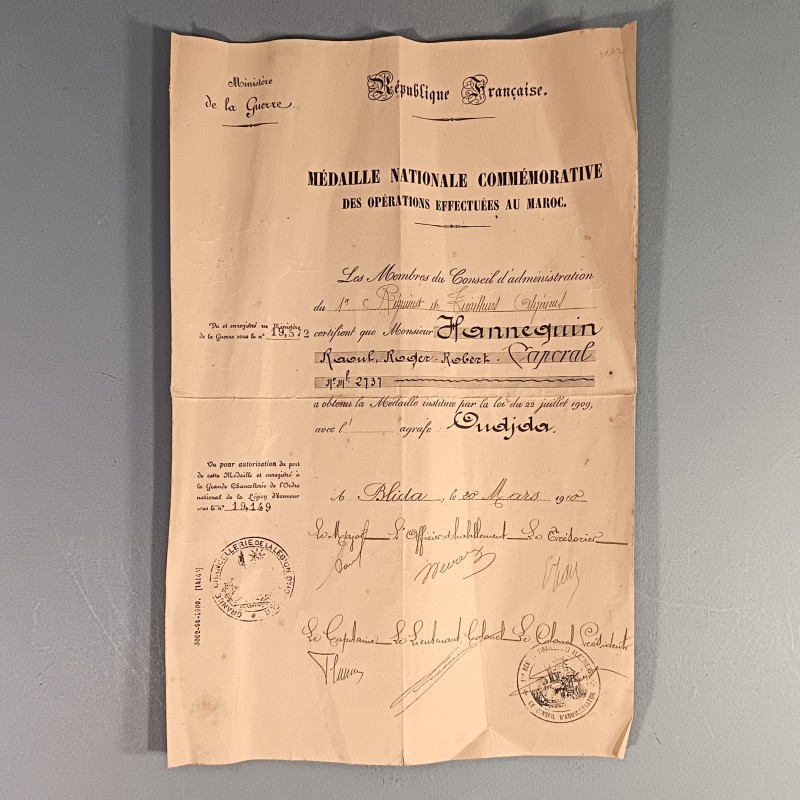 Ministère
de la Guerre.
République Française.
MÉDAILLE NATIONALE COMMÉMORATIVE
DES OPÉRATIONS EFFECTUÉES AU MAROC.
Les Membres du Conseil d'administration
du 1er Régiment de Tirailleurs Algériens
Vu et enregistré au Ministère
de la Guerre sous le n° 19,572
certifient que Monsieur Hannequin
Raoul, Roger-Robert. Caporal
N° Ml 2737
a obtenu la Médaille instituée par la loi du 22 juillet 1909,
avec l' agrafe: Oudjda.
Vu pour autorisation du port
de cette Médaille et enregistré à
la Grande Chancellerie de l'Ordre
national de la Légion d'honneur
sous le n° 19,149
A Blida, le 30 Mars 1910
Le Major L'Officier d'habillement Le Trésorier
Le Capitaine Le Lieutenant Colonel Le Colonel Président
GRANDE CHANCELLERIE DE LA LÉGION D'HONNEUR
LE CONSEIL D'ADMINISTRATION
3002-94-1909. [14141]